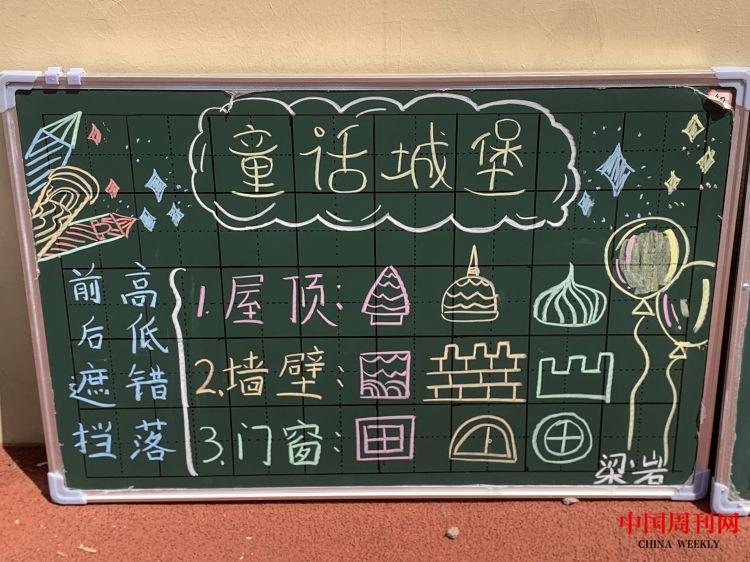 童话城堡
高低错落
前后遮挡
1.屋顶:
2.墙壁:
3.门窗:
梁岩
中国周刊网
CHINA WEEKLY